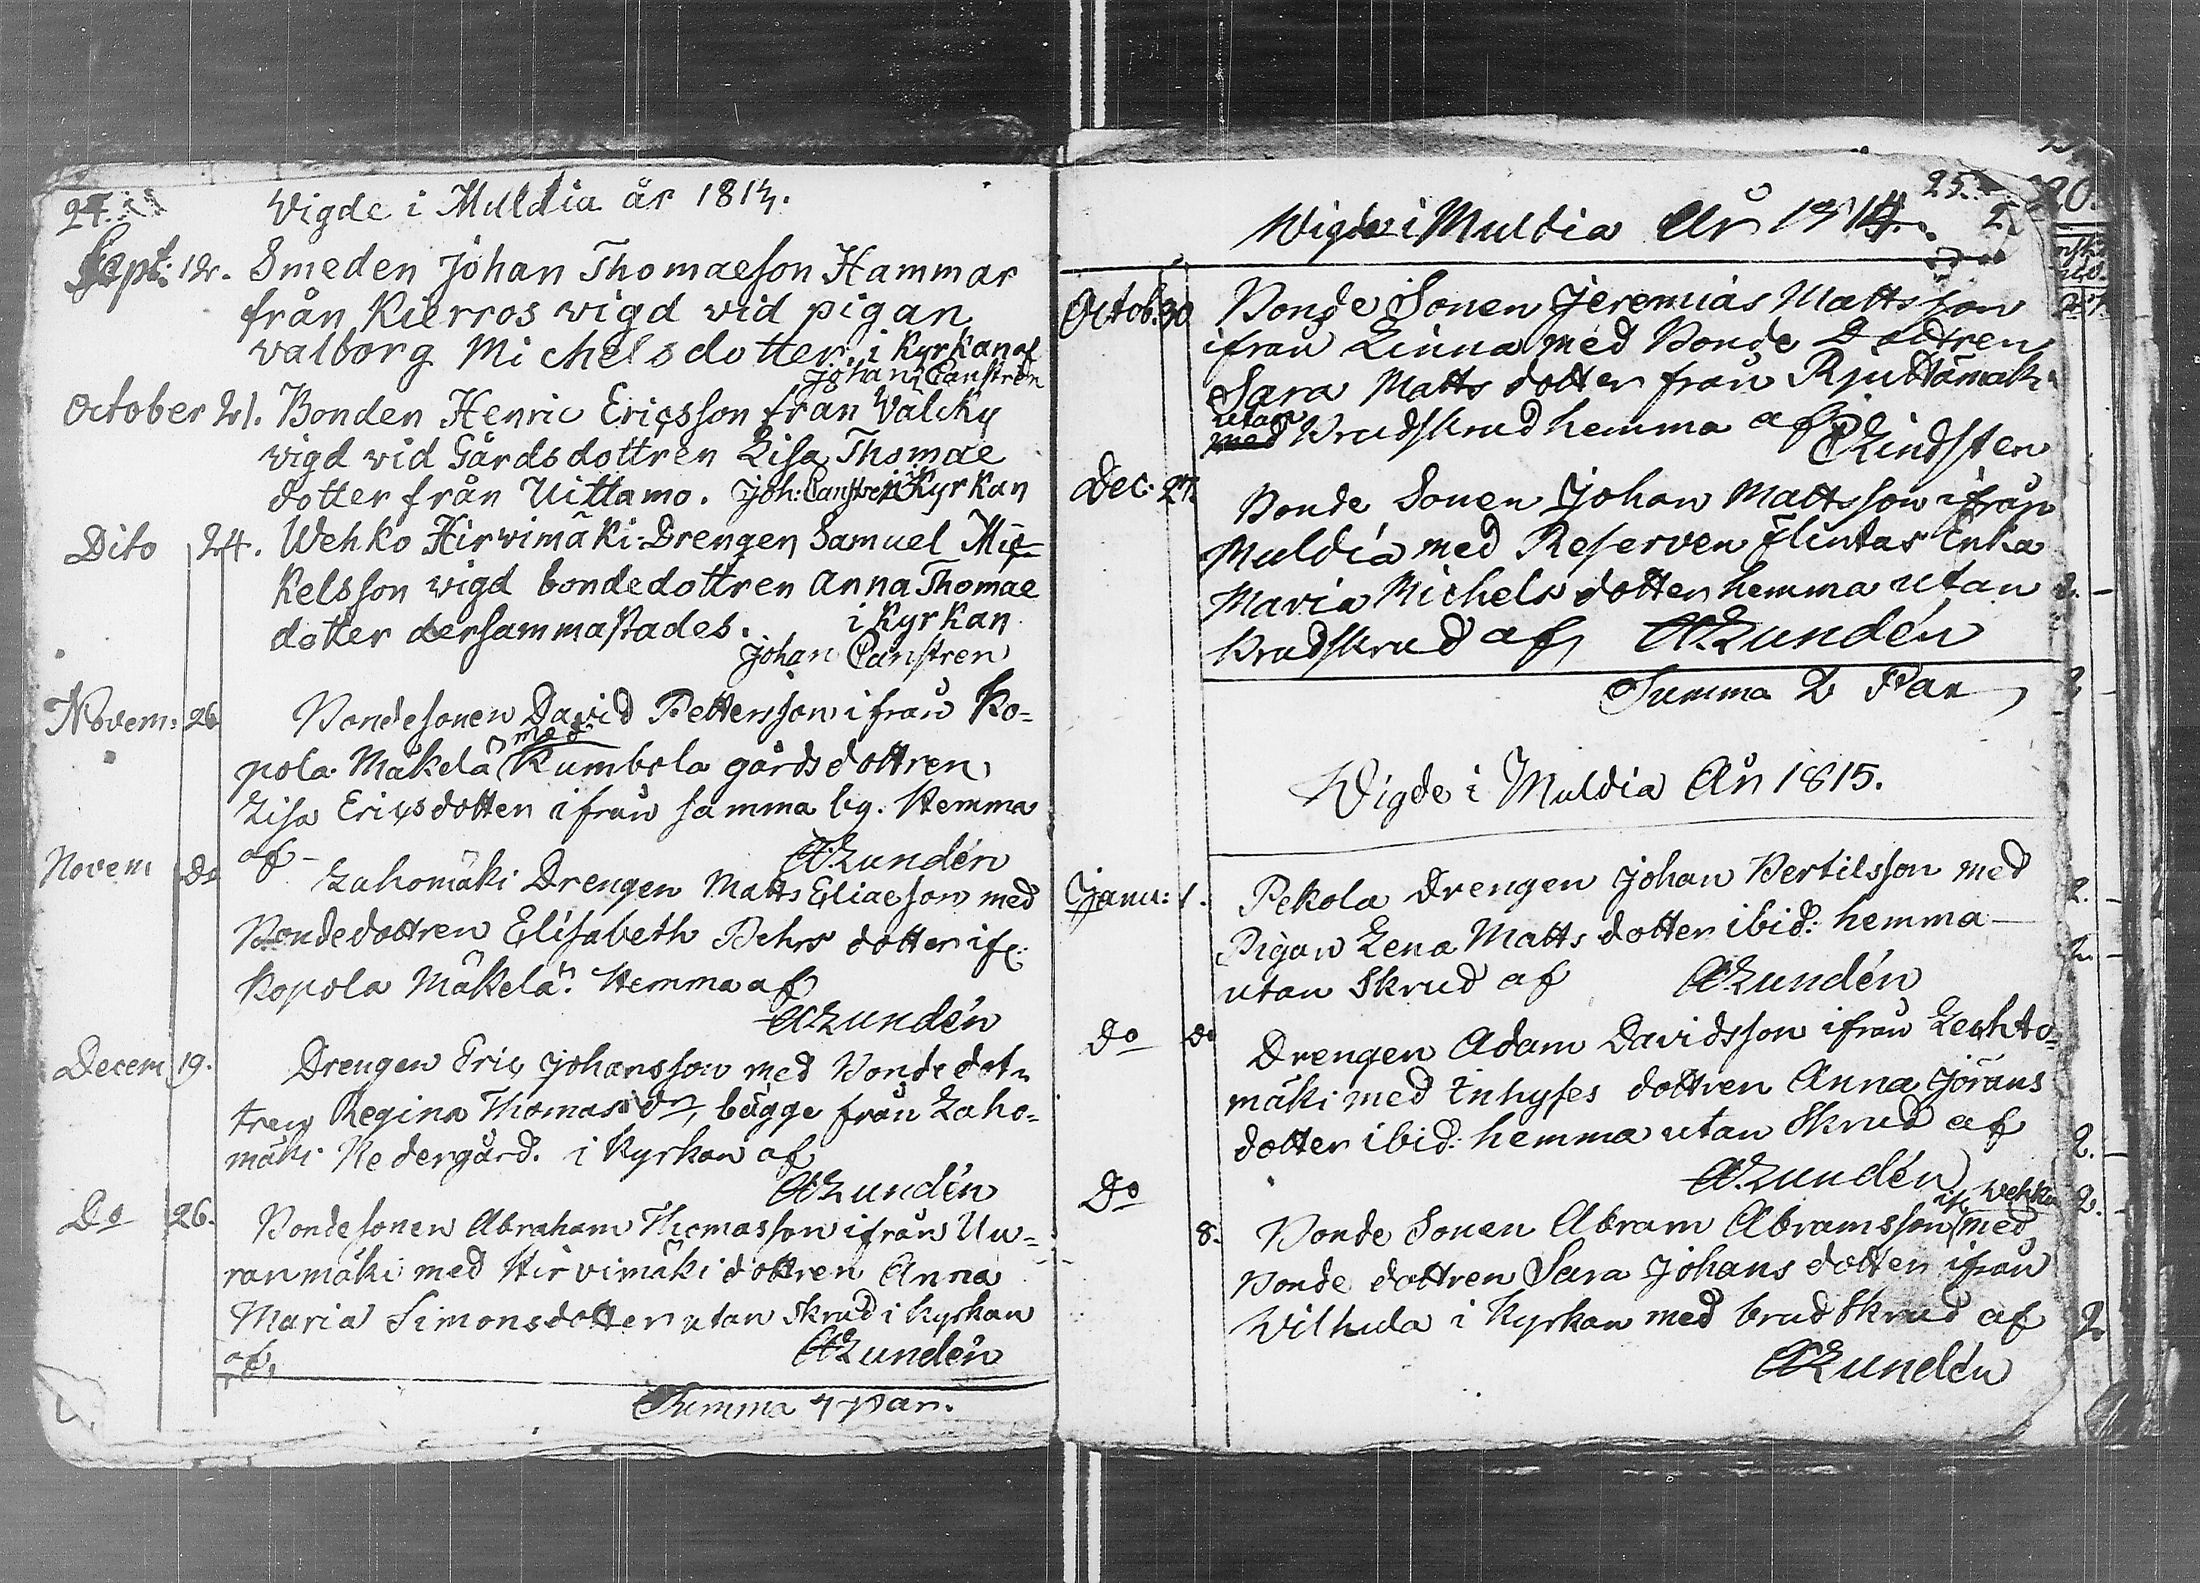 24.
Vigde i Muldia år 1813.
Sept: 12. Smeden Johan Thomaesson Hammar
från Kierros vigd vid pigan
valborg Michelsdotter, i Kyrkan af
Johan Canstrén
October 21. Bonden Henric Ericsson från Välcky
vigd vid Gårdsdottren Lisa Thomae
dotter från Uittamo. Joh: Canstren i Kyrkan
Dito 24. Wehko Hirvimäki Drengen Samuel Mic-
kelsson vigd bondedottren Anna Thomae
dotter dersammastades. i Kyrkan
Johan Canstren
Novem: 26 Bondesonen David Pettersson ifrån Ko=
med
pola Mäkelä Kumbola gårdsdottren
Lisa Ericsdotter ifrån samma by. Hemma
af A Lundén
Novem do Lahomäki Drengen Matts Eliaeson med
Bondedottren Elisabeth Pehrs dotter ifr:
Kopola Mäkelä. Hemma af
A Lundén
Decem 19. Drengen Eric Johansson med Bondedot=
tren Regina Thomas dr, bägge från Laho=
mäki Nedergård. i Kyrkan af
A Lundén
Do 26. Bondesonen Abraham Thomasson ifrån Uu=
ranmäki med Hirvimäki dottren Anna
Maria Simonsdotter utan Skrud i Kyrkan
af, A Lundén
Summa 7 par.
25.
Wigde i Muldia År 1814.
Octob. 30 Bonde Sonen Jeremias Mattsson
ifrån Linna med Bonde Dottren
Sara Matts dotter från Rjuttämäki
utan
med Brudskrud hemma af
C Lindsten
Dec: 27. Bonde Sonen Johan Mattsson ifrån
Muldia med Reserven Flintas Enka
Maria Michels dotter hemma utan
Brudskrud af A Lundén
Summa 2 Par
Wigde i Muldia År 1815.
Janu: 1. Pekola Drengen Johan Bertilsson med
Pigan Lena Matts dotter ibid: hemma
utan Skrud af A Lundén
do do Drengen Adam Davidsson ifrån Lehto=
mäki med Inhyses dottren Anna Jörans
dotter ibid: hemma utan Skrud af
A Lundén
ifr Wehko
Do 8. Bonde Sonen Abram Abramsson med
Bonde dottren Sara Johans dotter ifrån
Wilhula i Kyrkan med brudSkrud af
A Lundén